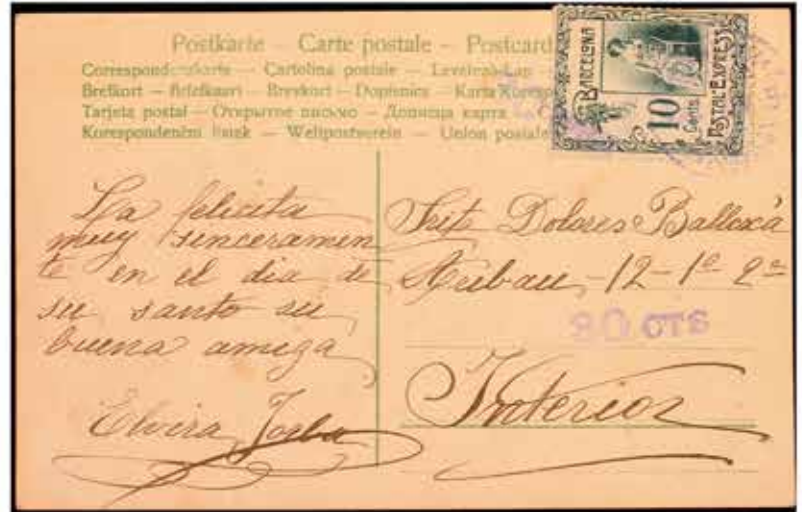 Postkarte – Carte postale – Postcard
Correspondenzkarte – Cartolina postale – Levelező-Lap
Brefkort – Briefkaart – Brevkort – Dopisnice – Karta
Tarjeta postal – Открытое письмо – Дописна карта
Korespondenční lístek – Weltpostverein – Union postale
BARCELONA
10
Cents.
POSTAL EXPRESS
La felicita
muy sinceramen
te en el dia de
su santo su
buena amiga
Elvira
Dolores
12-1º 2ª
30 CTS
Interior